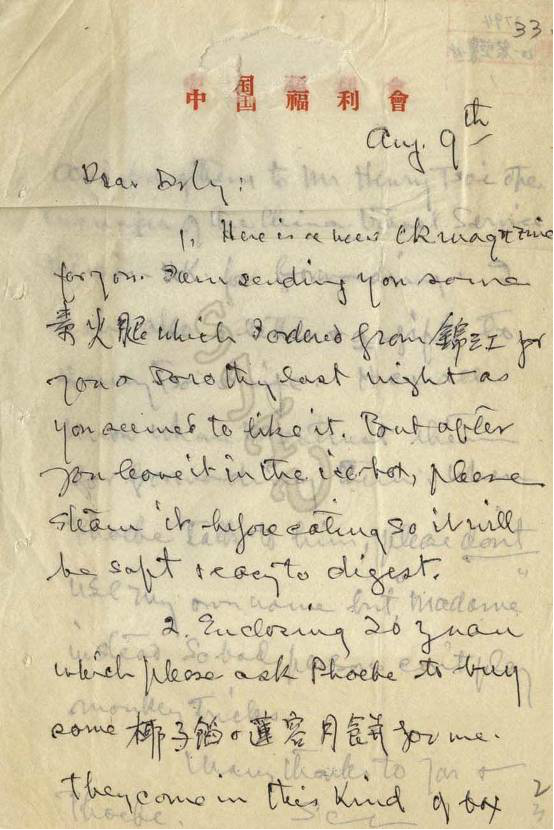 33.
中国福利會
Aug. 9th
Dear Doly:
1, Here is a new CK magazine
for you. I am sending you some
火腿 which I ordered from 錦江 for
you & Dorothy last night as
you seemed to like it. But after
you leave it in the icebox, please
steam it before eating so it will
be soft & easy to digest.
2. Enclosing 20 yuan
which please ask Phoebe to buy
some 椰子 & 蓮容月餅 for me.
They come in this kind of box